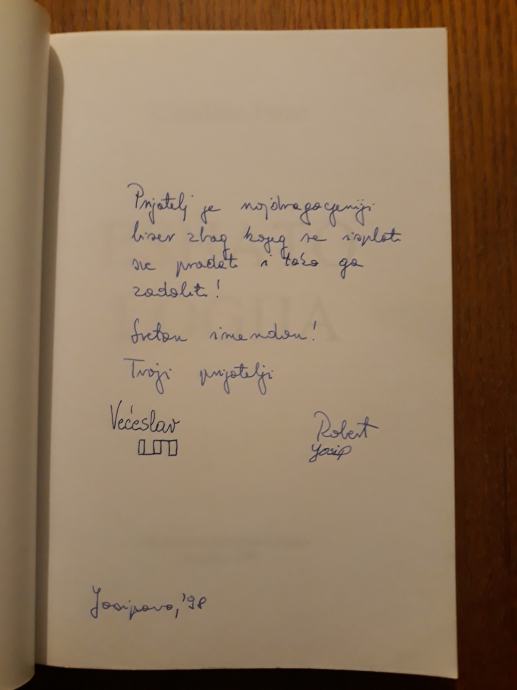 Prijatelj je najdragocjeniji
biser zbog kojeg se isplati
sve prodati i tako ga
zadobiti!
Sretan imendan!
Tvoji prijatelji
Većeslav
Robert
Josip
Josipovo, '98